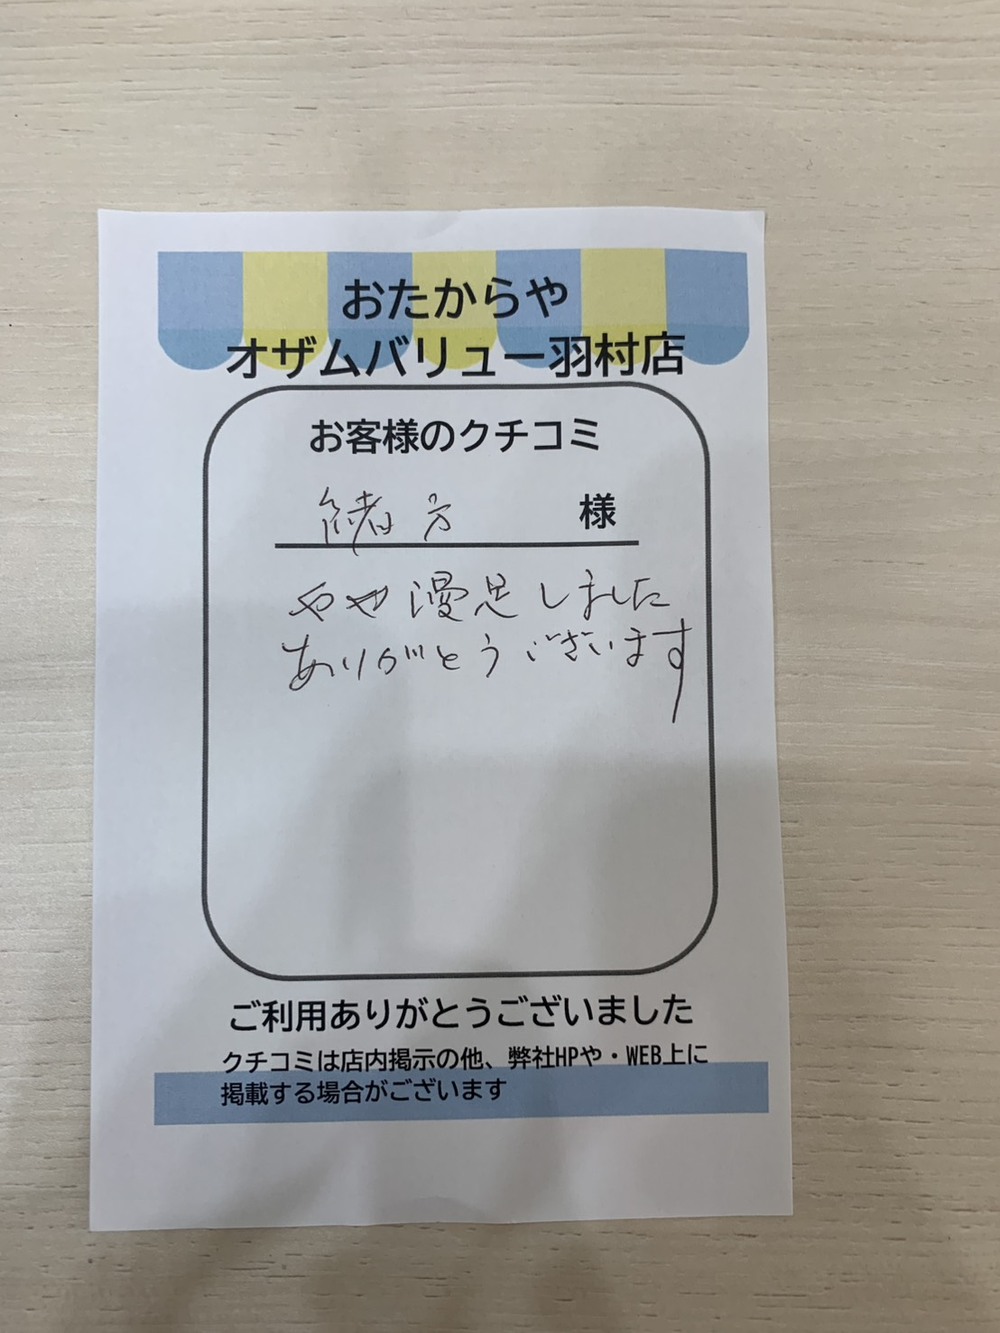 おたからや
オザムバリュー羽村店
お客様のクチコミ
緒方 様
やや漫足しました
ありがとうございます
ご利用ありがとうございました
クチコミは店内掲示の他、弊社HPや・WEB上に
掲載する場合がございます